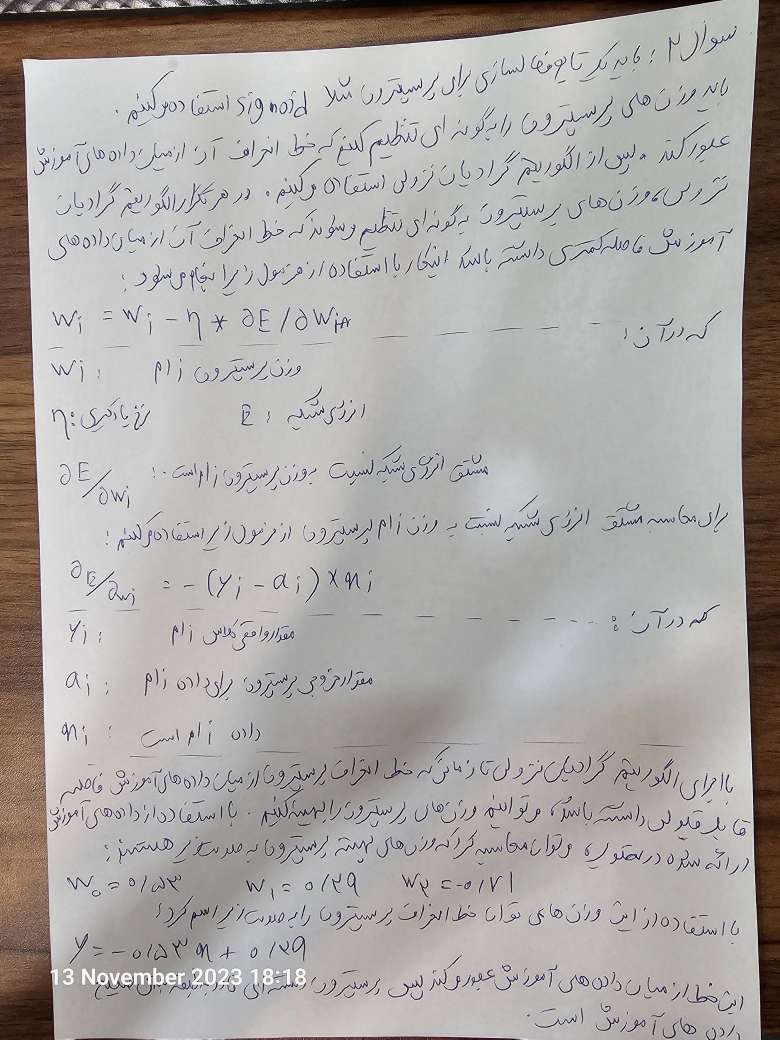 سوال ۲ : باید یک تابع فعالسازی برای پرسپترون مثلا sigmoid استفاده میکنیم.
باید وزن های پرسپترون را به گونه ای تنظیم کنیم که خط انحراف آن از میان داده های آموزش
عبور کند. پس از الگوریتم گرادیان نزولی استفاده میکنیم. در هر تکرار الگوریتم گرادیان
نزولی، وزن های پرسپترون به گونه ای تنظیم میشوند که خط انحراف آن از میان داده های
آموزش فاصله کمتری داشته باشد. اینکار با استفاده از فرمول زیر انجام می شود :
wj = wj - η * ∂E/∂wj
که در آن :
wj : وزن پرسپترون j ام
η: نرخ یادگیری E : انرژی شبکه
∂E/∂wj : مشتق انرژی شبکه نسبت به وزن پرسپترون j ام است.
برای محاسبه مشتق انرژی شبکه نسبت به وزن j ام پرسپترون از فرمول زیر استفاده میکنیم :
∂E/∂wj = -(yj - aj) × nj
که در آن :
yj : مقدار واقعی کلاس j ام
aj : مقدار خروجی پرسپترون برای داده j ام
nj : داده j ام است
با اجرای الگوریتم گرادیان نزولی تا زمانی که خط انحراف پرسپترون از میان داده های آموزش فاصله
قابل قبولی داشته باشد، میتوانیم وزن های پرسپترون را بهینه کنیم. با استفاده از داده های آموزش
ارائه شده در میتوان محاسبه کرد که وزن های بهینه پرسپترون به صورت زیر هستند :
w₀ = ۰/۵۳ w₁ = ۰/۳۹ w₂ = -۰/۷۱
با استفاده از این وزن های توان خط انحراف پرسپترون را به صورت زیر رسم کرد :
y = -۰/۵۳n + ۰/۳۹
13 November 2023 18:18
این خط از میان داده های آموزش عبور میکند پس پرسپترون
داده های آموزش است.